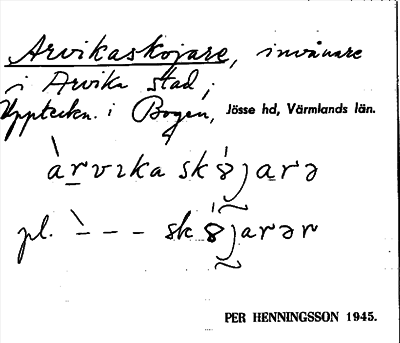 Arvikaskojare, invånare
i Arvika stad;
Uppteckn. i Bogen, Jösse hd, Värmlands län.
àrvika sk8jarə
pl. `--- sk8jarər
PER HENNINGSSON 1945.